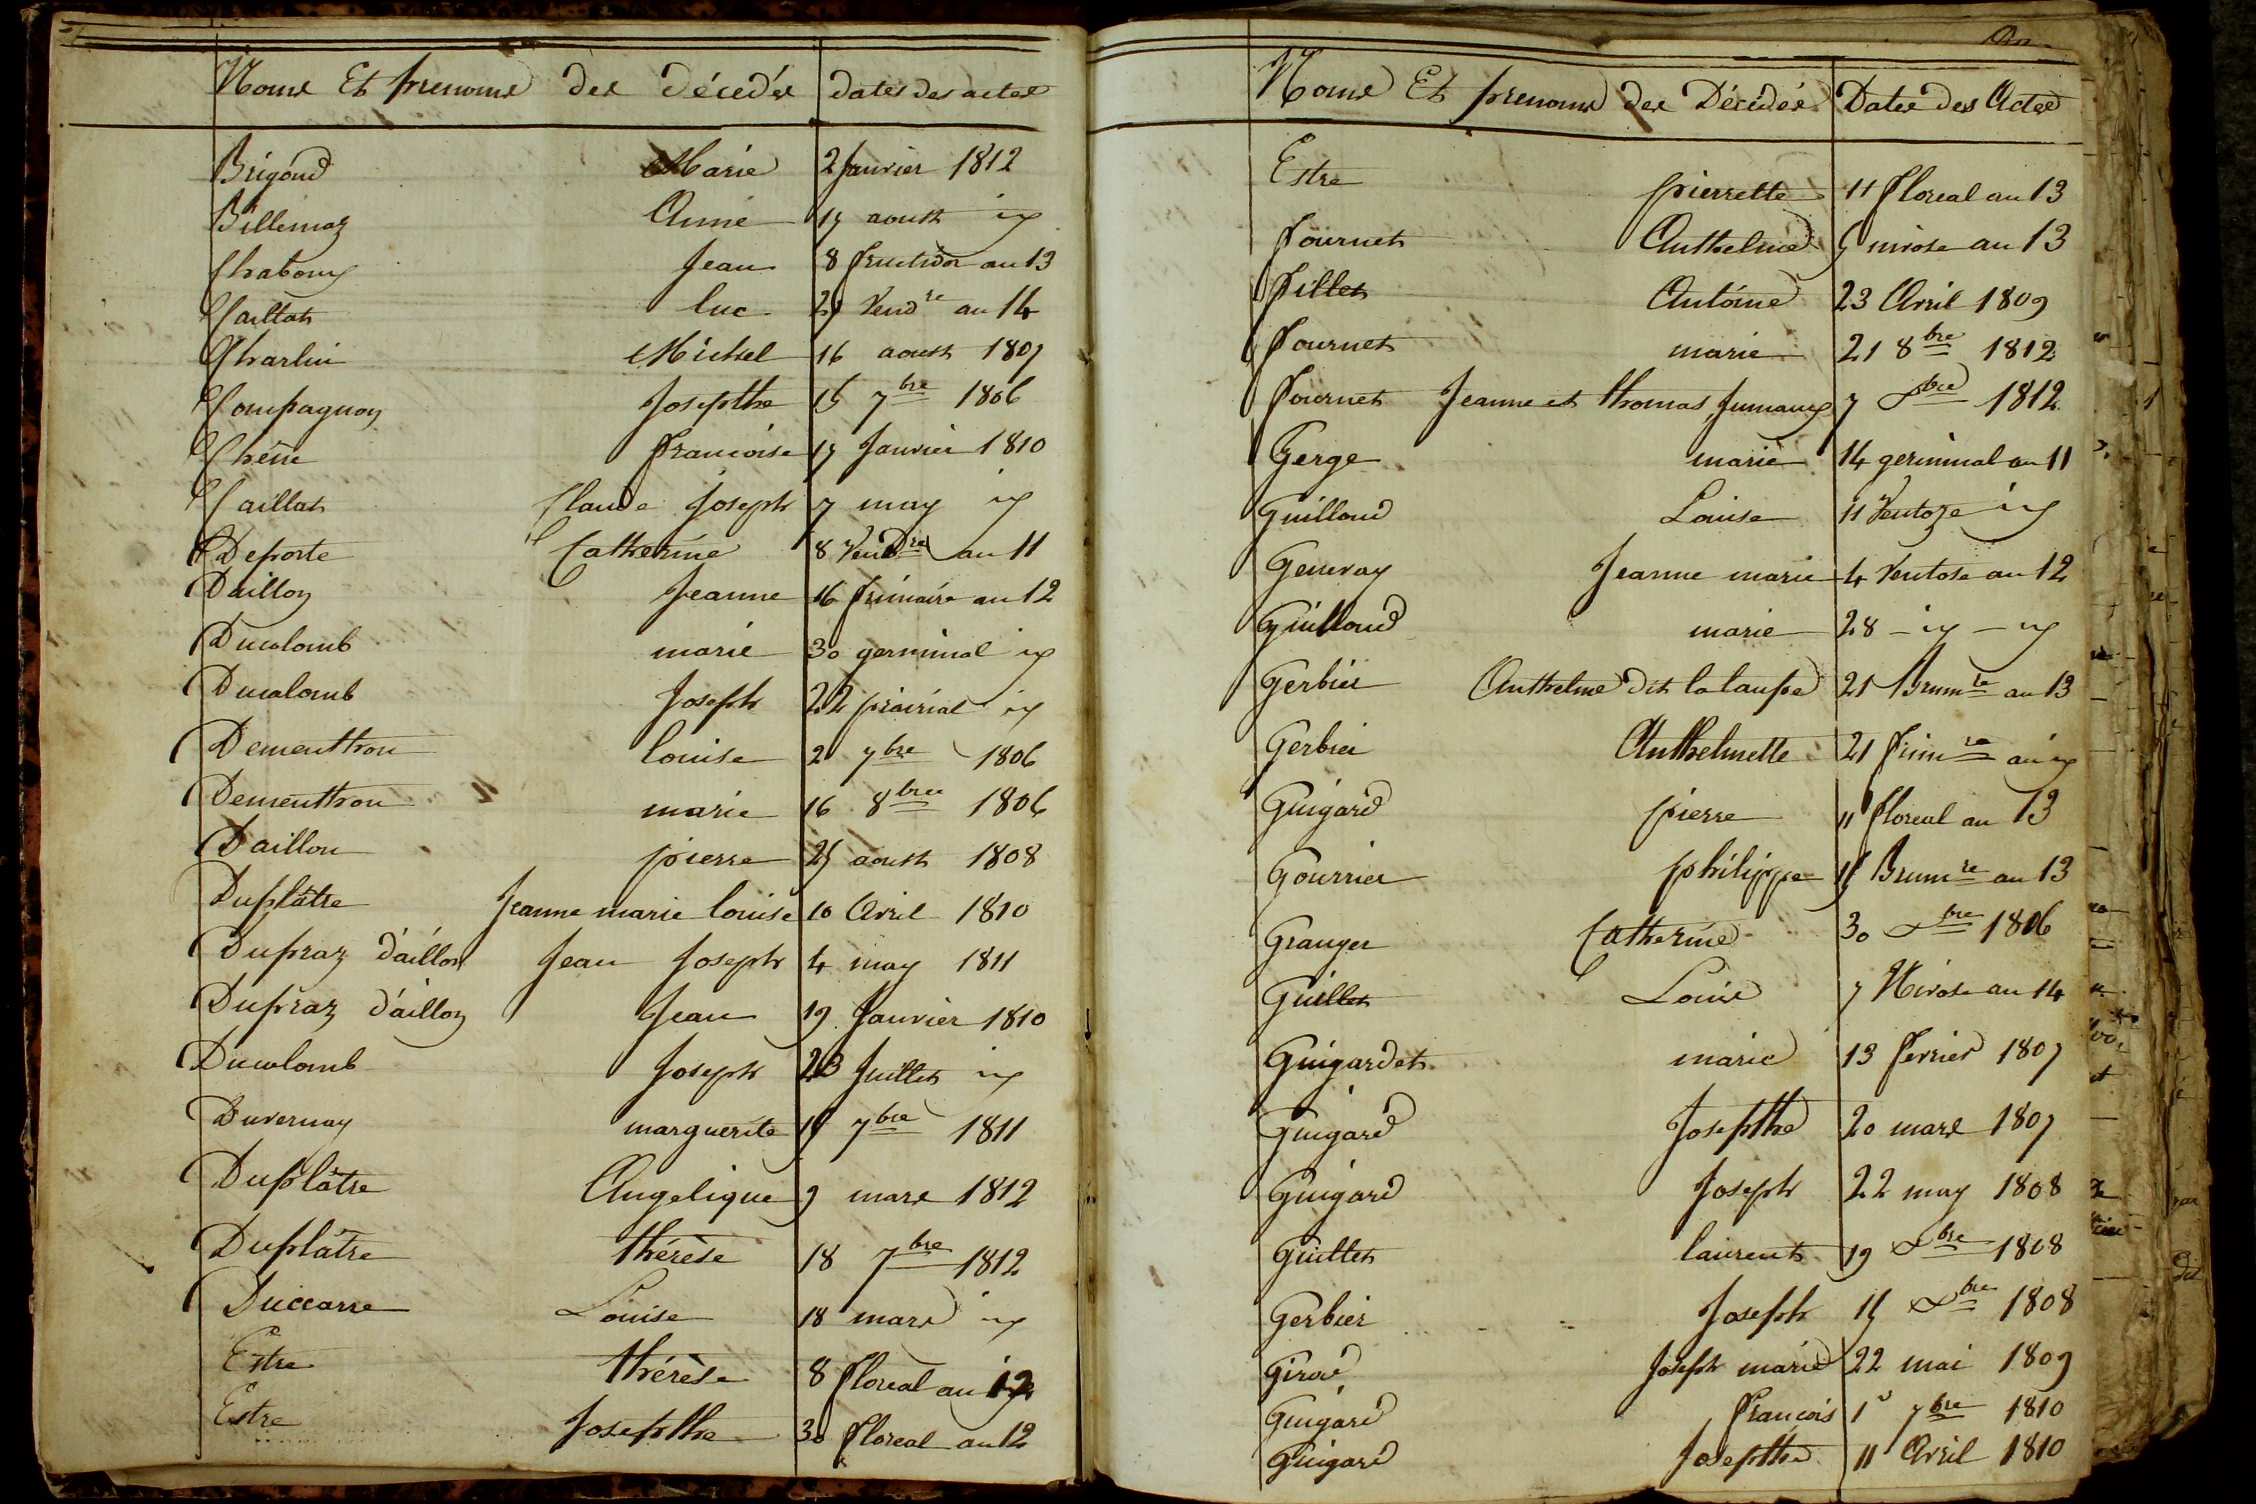 Noms Et prenoms des décédés dates des actes
Brigand Marie 2 Janvier 1812
Billemaz Anne 15 aoust id
Chabouy Jean 8 fructidor an 13
Caillat luc 29 Vend.re an 14
Charlin Michel 16 aoust 1807
Compagnon Josepthe 15 7bre 1806
Chêne francoise 15 Janvier 1810
Caillat Claude Joseph 7 may id
Deporte Catherine 8 Vend.re an 11
Daillon Jeanne 16 frimaire an 12
Ducolomb marie 30 germinal id
Ducolomb Joseph 22 prairial id
Dementhon louise 2 7bre 1806
Dementhon marie 16 8bre 1806
Daillon pierre 25 aoust 1808
Duplâtre Jeanne marie louise 10 Avril 1810
Dupraz d'aillon Jean Joseph 4 may 1811
Dupraz d'aillon Jean 19 Janvier 1810
Ducolomb Joseph 23 Juillet id
Duvernay marguerite 15 7bre 1811
Duplâtre Angelique 9 mars 1812
Duplâtre thérèse 18 7bre 1812
Duccarre Louise 18 mars id
Estre thérèse 8 floreal an 12
Estre Josepthe 30 floreal an 12
Noms Et prenoms des Décédés Dates des Actes
Estre pierrette 11 floreal an 13
fournet Anthelme 5 nivose an 13
fillet Antoine 23 Avril 1809
fournet marie 21 8bre 1812
fournet Jeanne et thomas Jumaux 7 Xbre 1812
Gerge marie 14 germinal an 11
Guilloud Louise 11 Ventoze id
Genevay Jeanne marie 4 Ventose an 12
Guilloud marie 28 - id - id
Gerbier Anthelme dit la taupe 21 Brum.re an 13
Gerbier Anthelmette 21 frim.re an id
Guigard pierre 11 floreal an 13
Gourrier philippe 15 Brum.re an 13
Granger Catherine 30 Xbre 1806
Guillet Louis 7 Nivose an 14
Guigardet marie 13 fevrier 1807
Guigard Josepthe 20 mars 1807
Guigard Joseph 22 may 1808
Guillet laurent 19 Xbre 1808
Gerbier Joseph 15 Xbre 1808
Girod Joseph marie 22 mai 1809
Guigard francois 1r 7bre 1810
Guigard Josepthe 11 Avril 1810